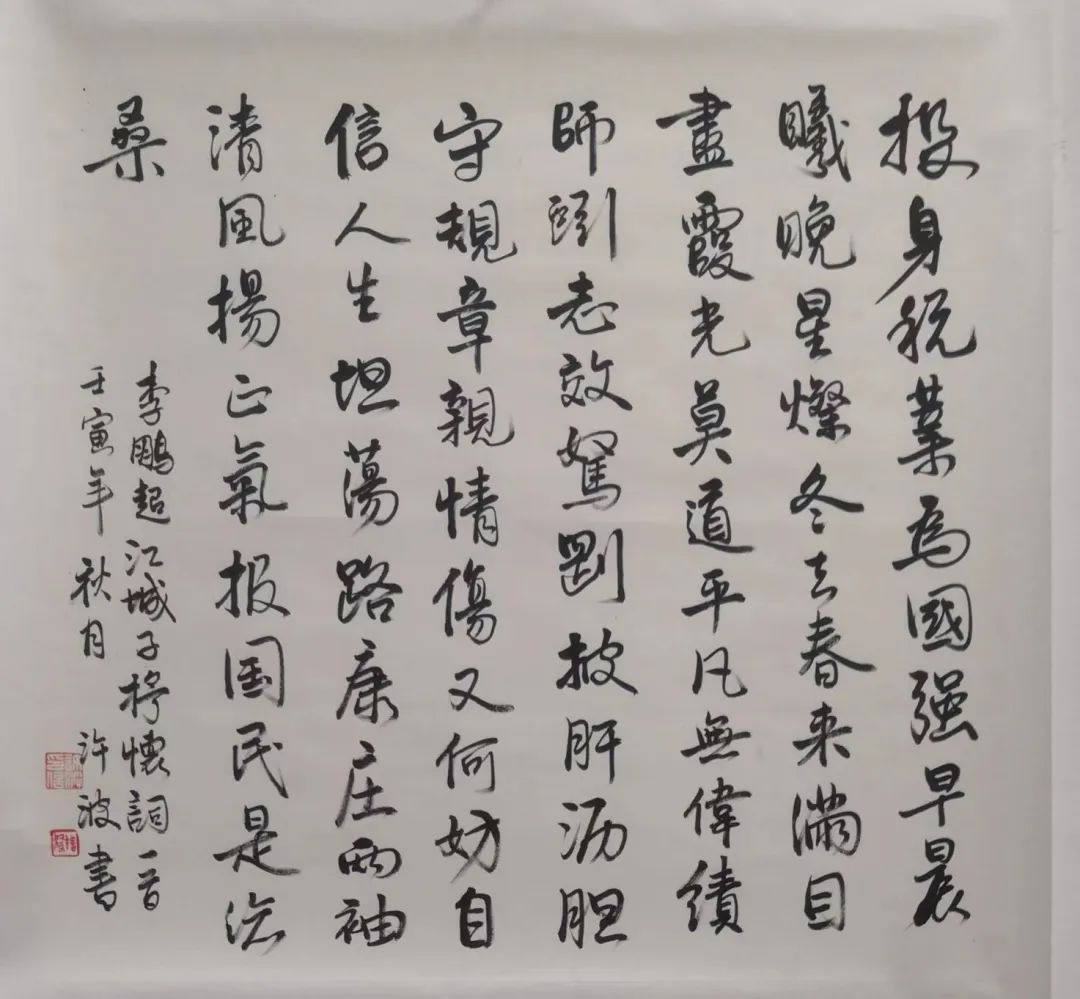 投身税業為國强早晨
曦晚星燦冬去春来滿目
盡霞光莫道平凡無偉績
師劉志效駑剛披肝沥胆
守規章親情傷又何妨自
信人生坦蕩路康庄兩袖
清風揚正氣报国民是沧
桑
李鵬超江城子抒懷詞一首
壬寅年秋月許波書